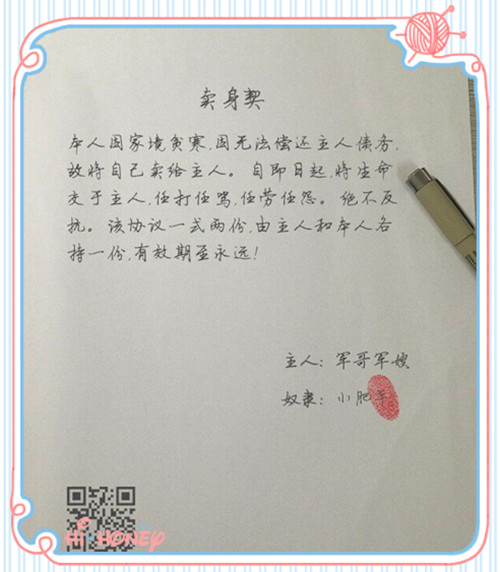 卖身契
本人因家境贫寒,因无法偿还主人债务,
故将自己卖给主人。自即日起,将生命
交于主人,任打任骂,任劳任怨。绝不反
抗。该协议一式两份,由主人和本人各
持一份,有效期至永远!
主人:军哥军嫂
奴隶:小肥羊
Hi·HONEY